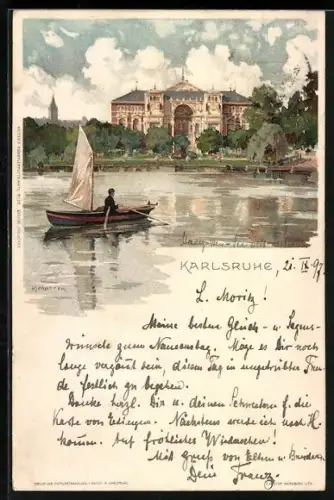 KARLSRUHE, 21. IX 97
L. Moritz!
Meine besten Glück- u. Segens-
wünsche zum Namenstag. Möge es Dir noch
lange vergönnt sein, diesen Tag in ungetrübter Freu-
de festlich zu begehen.
Danke herzl. Dir u. deinen Schwestern f. die
Karte von . Nächstens werde ich nach H.
kommen. Auf fröhliches Wiedersehen!
Mit Gruss von Eltern u. Brüdern
Dein Franz.